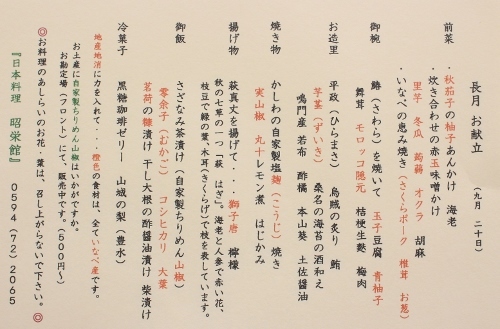 長月 お献立 (九月 二十日)
前菜 ・秋茄子の柚子あんかけ 海老
・炊き合わせの赤玉味噌かけ
里芋 冬瓜 蒟蒻 オクラ 胡麻
・いなべの恵み焼き(さくらポーク 椎茸 お葱)
御椀 鰆(さわら)を焼いて 玉子豆腐 青柚子
舞茸 モロッコ隠元 桔梗生麩 梅肉
お造里 平政(ひらまさ) 烏賊の炙り 鮪
芋茎(ずいき) 桑名の海苔の酒和え
鳴門産 若布 酢橘 本山葵 土佐醤油
焼き物 かしわの自家製塩麹(こうじ)焼き
実山椒 丸十レモン煮 はじかみ
揚げ物 萩真丈を揚げて・・・獅子唐 檸檬
秋の七草の一つ「萩 はぎ」。海老と人参で赤い花、
枝豆で緑の葉、木耳(きくらげ)で枝を表しています。
御飯 さざなみ茶漬け(自家製ちりめん山椒)
零余子(むかご) コシヒカリ 大葉
茗荷の糠漬け 干し大根の酢醤油漬け 柴漬け
冷菓子 黒糖珈琲ゼリー 山城の梨(豊水)
地産地消に力を入れて・・・橙色の食材は、全ていなべ産です。
お土産に自家製ちりめん山椒はいかがですか。
お勘定場(フロント)にて、販売中です。(500円〜)
◎お料理のあしらいのお花・葉は、召し上がらないで下さい。◎
『日本料理 昭栄館』 0594(72)2065